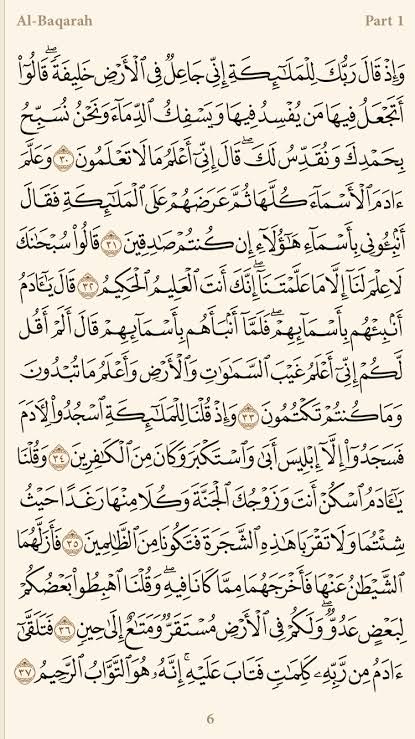 Al-Baqarah Part 1
وَإِذْ قَالَ رَبُّكَ لِلْمَلَٰٓئِكَةِ إِنِّى جَاعِلٌ فِى ٱلْأَرْضِ خَلِيفَةً ۖ قَالُوٓا۟
أَتَجْعَلُ فِيهَا مَن يُفْسِدُ فِيهَا وَيَسْفِكُ ٱلدِّمَآءَ وَنَحْنُ نُسَبِّحُ
بِحَمْدِكَ وَنُقَدِّسُ لَكَ ۖ قَالَ إِنِّىٓ أَعْلَمُ مَا لَا تَعْلَمُونَ ٣٠ وَعَلَّمَ
ءَادَمَ ٱلْأَسْمَآءَ كُلَّهَا ثُمَّ عَرَضَهُمْ عَلَى ٱلْمَلَٰٓئِكَةِ فَقَالَ
أَنۢبِـُٔونِى بِأَسْمَآءِ هَٰٓؤُلَآءِ إِن كُنتُمْ صَٰدِقِينَ ٣١ قَالُوا۟ سُبْحَٰنَكَ
لَا عِلْمَ لَنَآ إِلَّا مَا عَلَّمْتَنَآ ۖ إِنَّكَ أَنتَ ٱلْعَلِيمُ ٱلْحَكِيمُ ٣٢ قَالَ يَٰٓـَٔادَمُ
أَنۢبِئْهُم بِأَسْمَآئِهِمْ ۖ فَلَمَّآ أَنۢبَأَهُم بِأَسْمَآئِهِمْ قَالَ أَلَمْ أَقُل
لَّكُمْ إِنِّىٓ أَعْلَمُ غَيْبَ ٱلسَّمَٰوَٰتِ وَٱلْأَرْضِ وَأَعْلَمُ مَا تُبْدُونَ
وَمَا كُنتُمْ تَكْتُمُونَ ٣٣ وَإِذْ قُلْنَا لِلْمَلَٰٓئِكَةِ ٱسْجُدُوا۟ لِءَادَمَ
فَسَجَدُوٓا۟ إِلَّآ إِبْلِيسَ أَبَىٰ وَٱسْتَكْبَرَ وَكَانَ مِنَ ٱلْكَٰفِرِينَ ٣٤ وَقُلْنَا
يَٰٓـَٔادَمُ ٱسْكُنْ أَنتَ وَزَوْجُكَ ٱلْجَنَّةَ وَكُلَا مِنْهَا رَغَدًا حَيْثُ
شِئْتُمَا وَلَا تَقْرَبَا هَٰذِهِ ٱلشَّجَرَةَ فَتَكُونَا مِنَ ٱلظَّٰلِمِينَ ٣٥ فَأَزَلَّهُمَا
ٱلشَّيْطَٰنُ عَنْهَا فَأَخْرَجَهُمَا مِمَّا كَانَا فِيهِ ۖ وَقُلْنَا ٱهْبِطُوا۟ بَعْضُكُمْ
لِبَعْضٍ عَدُوٌّ ۖ وَلَكُمْ فِى ٱلْأَرْضِ مُسْتَقَرٌّ وَمَتَٰعٌ إِلَىٰ حِينٍ ٣٦ فَتَلَقَّىٰٓ
ءَادَمُ مِن رَّبِّهِۦ كَلِمَٰتٍ فَتَابَ عَلَيْهِ ۚ إِنَّهُۥ هُوَ ٱلتَّوَّابُ ٱلرَّحِيمُ ٣٧
6